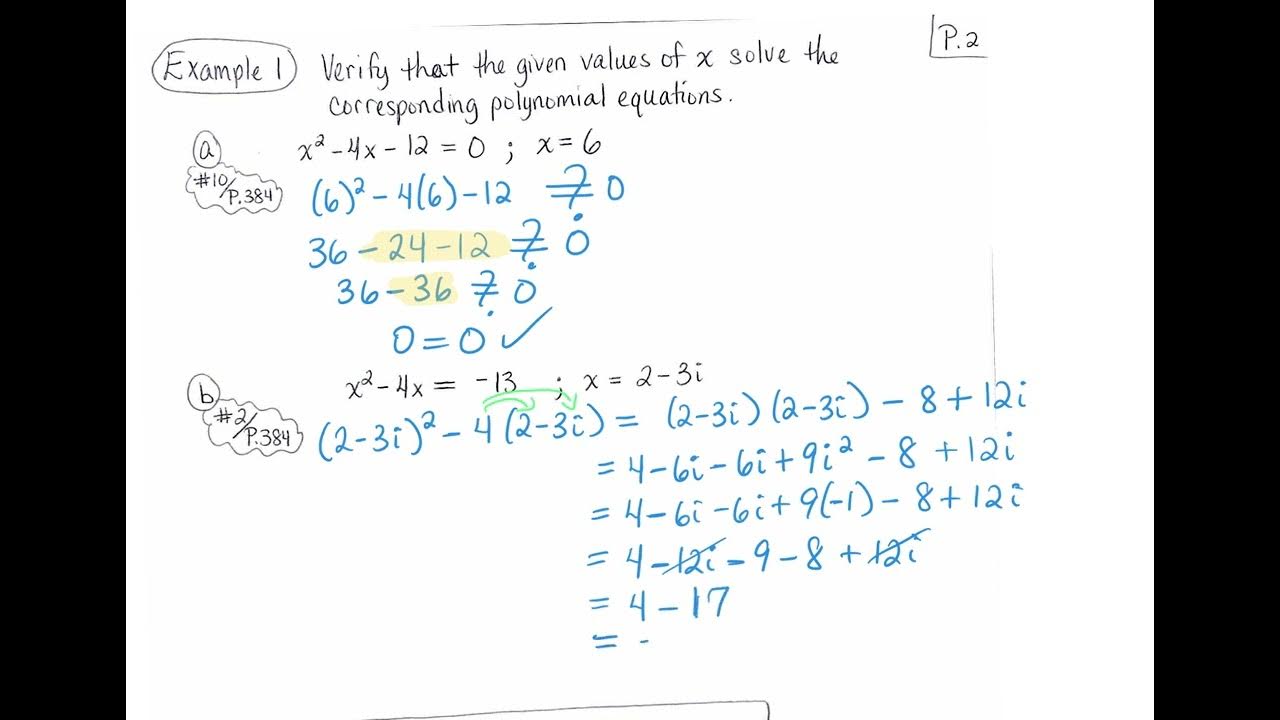 P.2
Example 1 Verify that the given values of x solve the
corresponding polynomial equations.
a x² - 4x - 12 = 0 ; x = 6
#10/P.384 (6)² - 4(6) - 12 ≟ 0
36 - 24 - 12 ≟ 0
36 - 36 ≟ 0
0 = 0 ✓
b x² - 4x = -13 ; x = 2 - 3i
#2/P.384 (2-3i)² - 4(2-3i) = (2-3i)(2-3i) - 8 + 12i
= 4 - 6i - 6i + 9i² - 8 + 12i
= 4 - 6i - 6i + 9(-1) - 8 + 12i
= 4 - 12i - 9 - 8 + 12i
= 4 - 17
= -